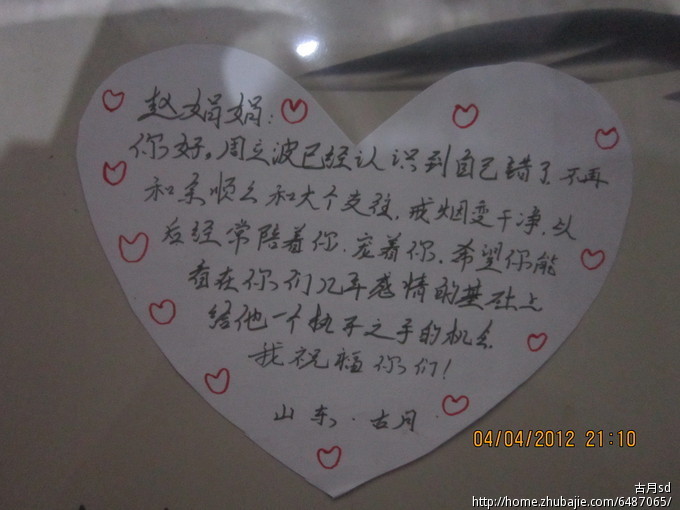 赵娟娟:
你好。周立波已经认识到自己错了,不再
和 顺 和大个交往,戒烟变干净,以
后经常陪着你,宠着你,希望你能
看在你们几年感情的基础上
给他一个执子之手的机会
我祝福你们!
山东·古月.
04/04/2012 21:10
古月sd
http://home.zhubajie.com/6487065/